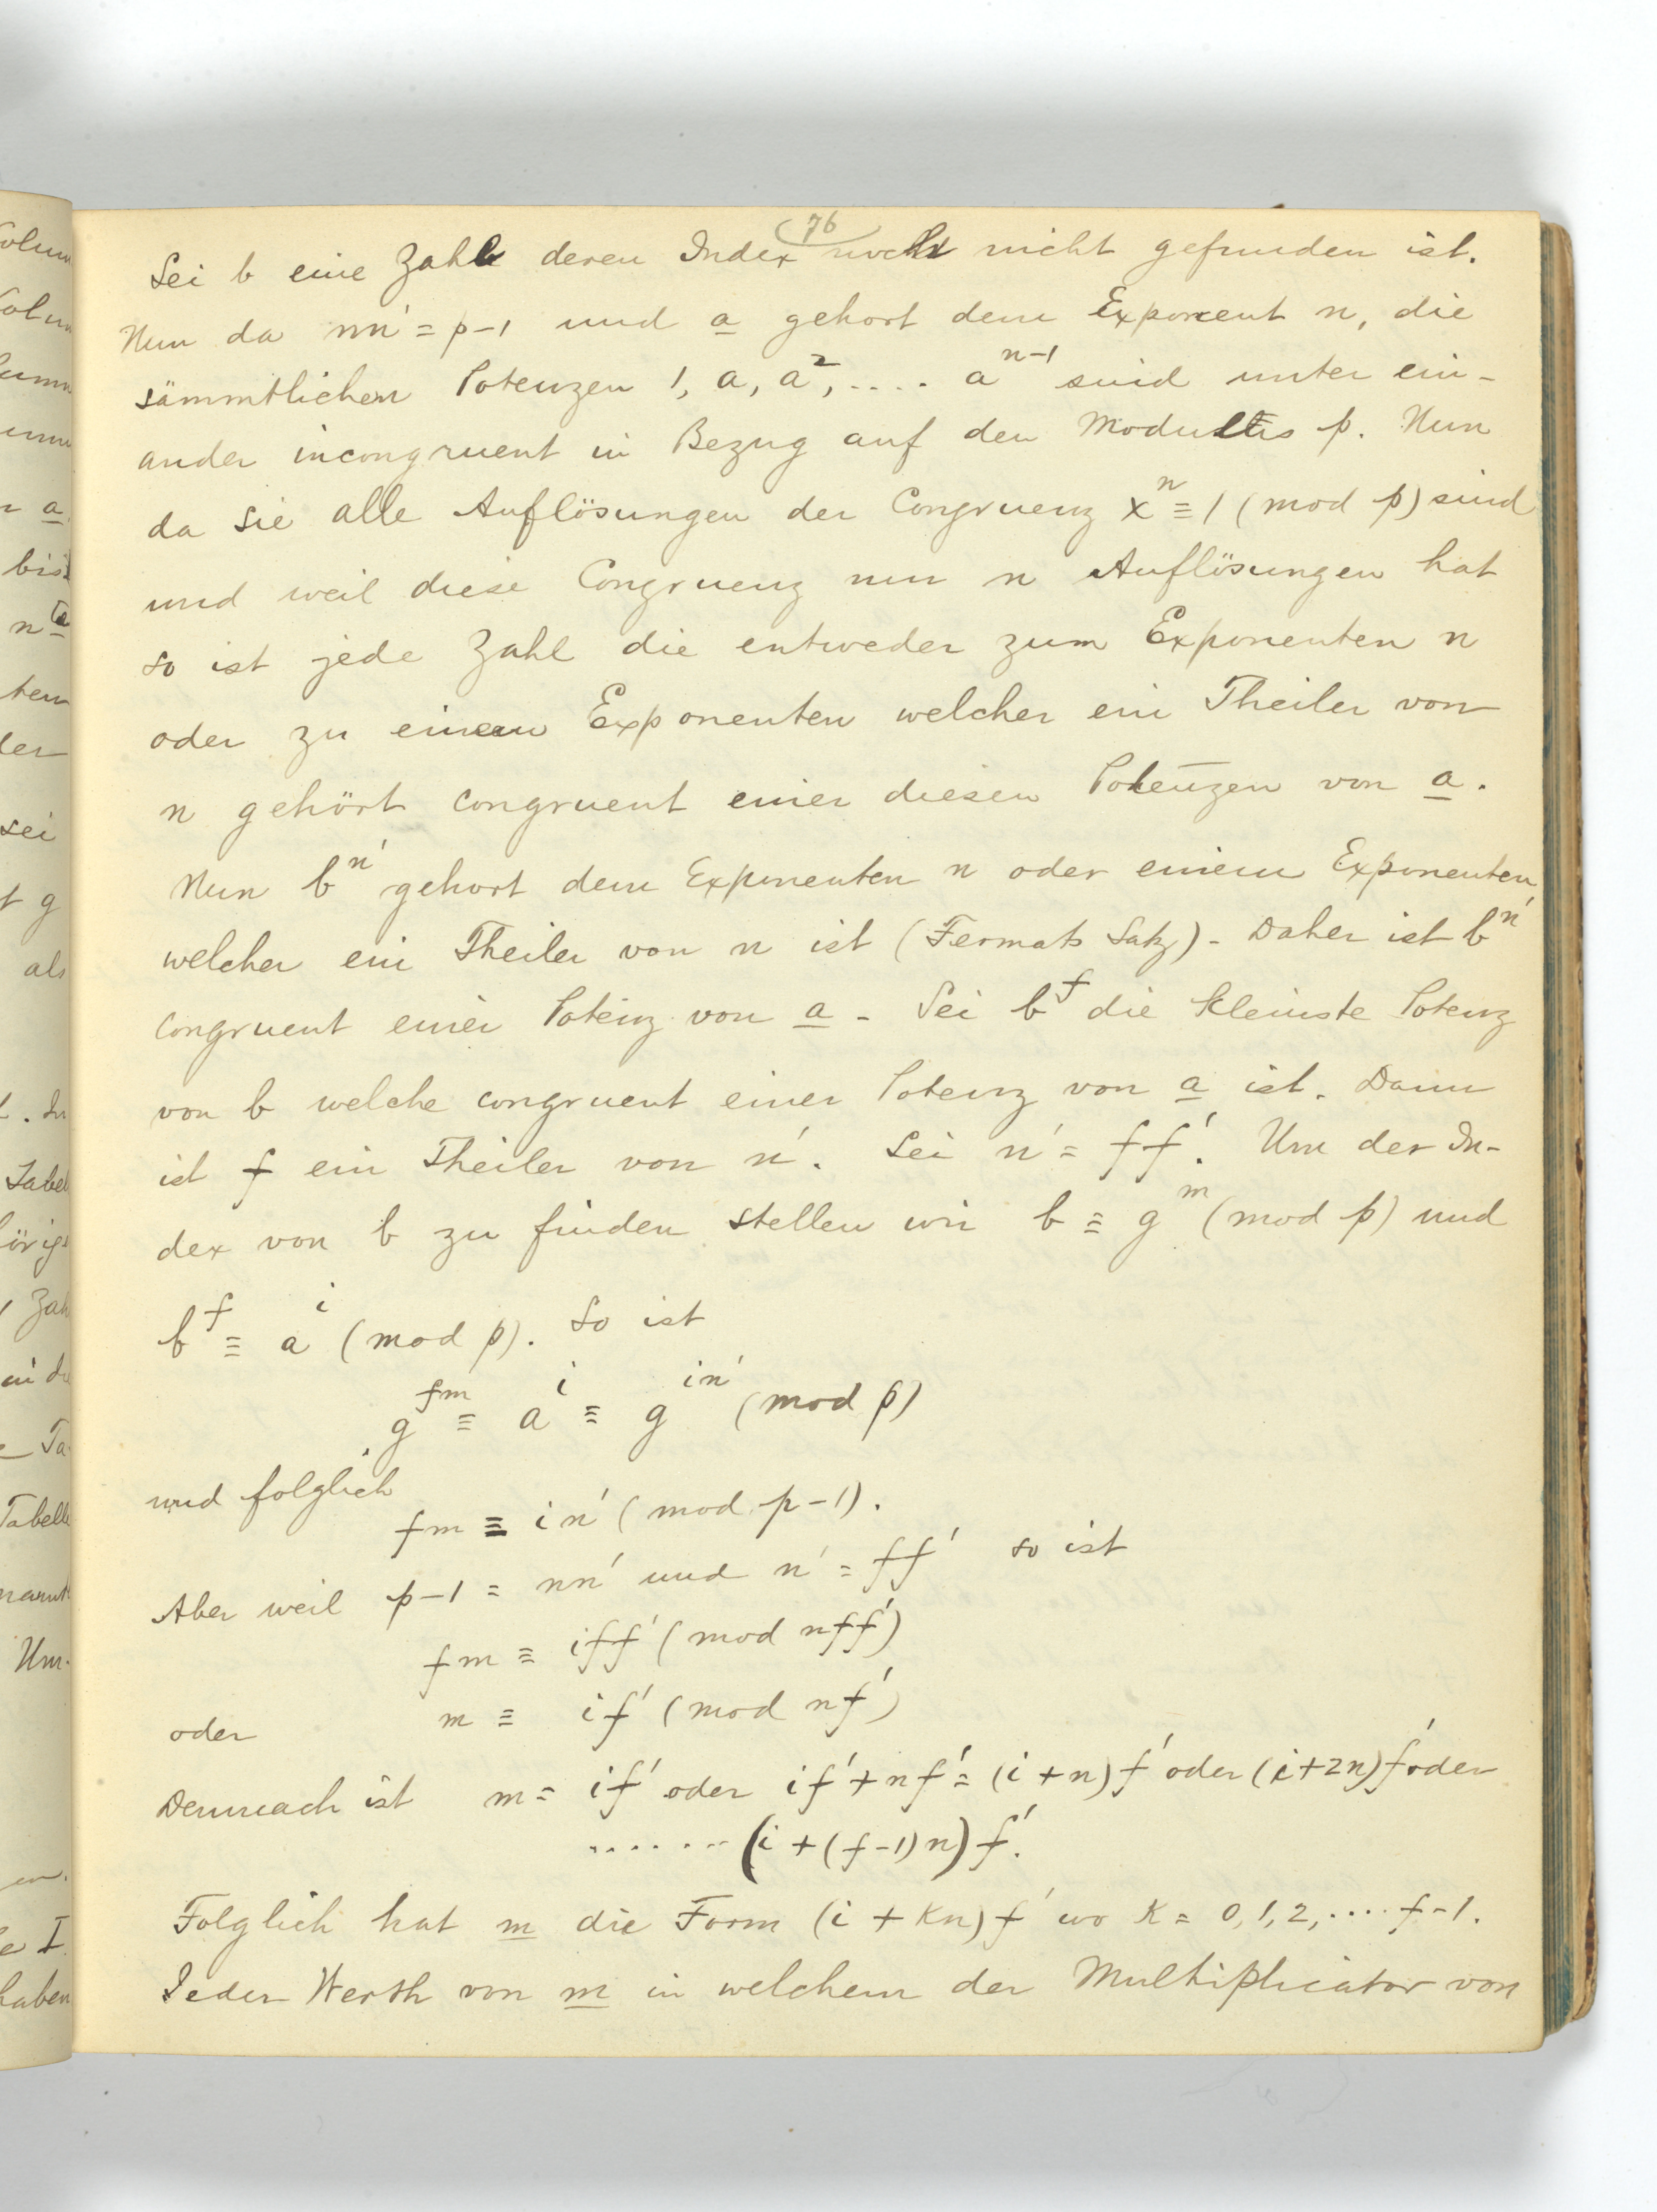 76
Sei b eine Zahl deren Index noch nicht gefunden ist.
Nun da nn' = p-1 und a gehort dem Exponent n, die
sämmtlichen Potenzen 1, a, a², .... aⁿ⁻¹ sind unter ein-
ander incongruent in Bezug auf den Modulus p. Nun
da sie alle Auflösungen der Congruenz xⁿ ≡ 1 (mod p) sind
und weil diese Congruenz nur n Auflösungen hat
so ist jede Zahl die entweder zum Exponenten n
oder zu einem Exponenten welcher ein Theiler von
n gehört congruent einer diesen Potenzen von a.
Nun b^n' gehort dem Exponenten n oder einem Exponenten
welcher ein Theiler von n ist (Fermats Satz) - Daher ist b^n'
congruent einer Potenz von a - Sei b^f die kleinste Potenz
von b welche congruent einer Potenz von a ist. Dann
ist f ein Theiler von n'. Sei n' = ff'. Um der In-
dex von b zu finden stellen wir b ≡ g^m (mod p) und
b^f ≡ a^i (mod p). So ist
g^fm ≡ a^i ≡ g^in' (mod p)
und folglich
fm ≡ in' (mod p-1).
Aber weil p-1 = nn' und n' = ff' so ist
fm ≡ iff' (mod nff')
oder m ≡ if' (mod nf')
Demnach ist m = if' oder if' + nf' = (i+n)f' oder (i+2n)f' oder
....... (i+(f-1)n)f'.
Folglich hat m die Form (i+Kn)f' wo K = 0,1,2,.... f-1.
Jeder Werth von m in welchem der Multiplicator von